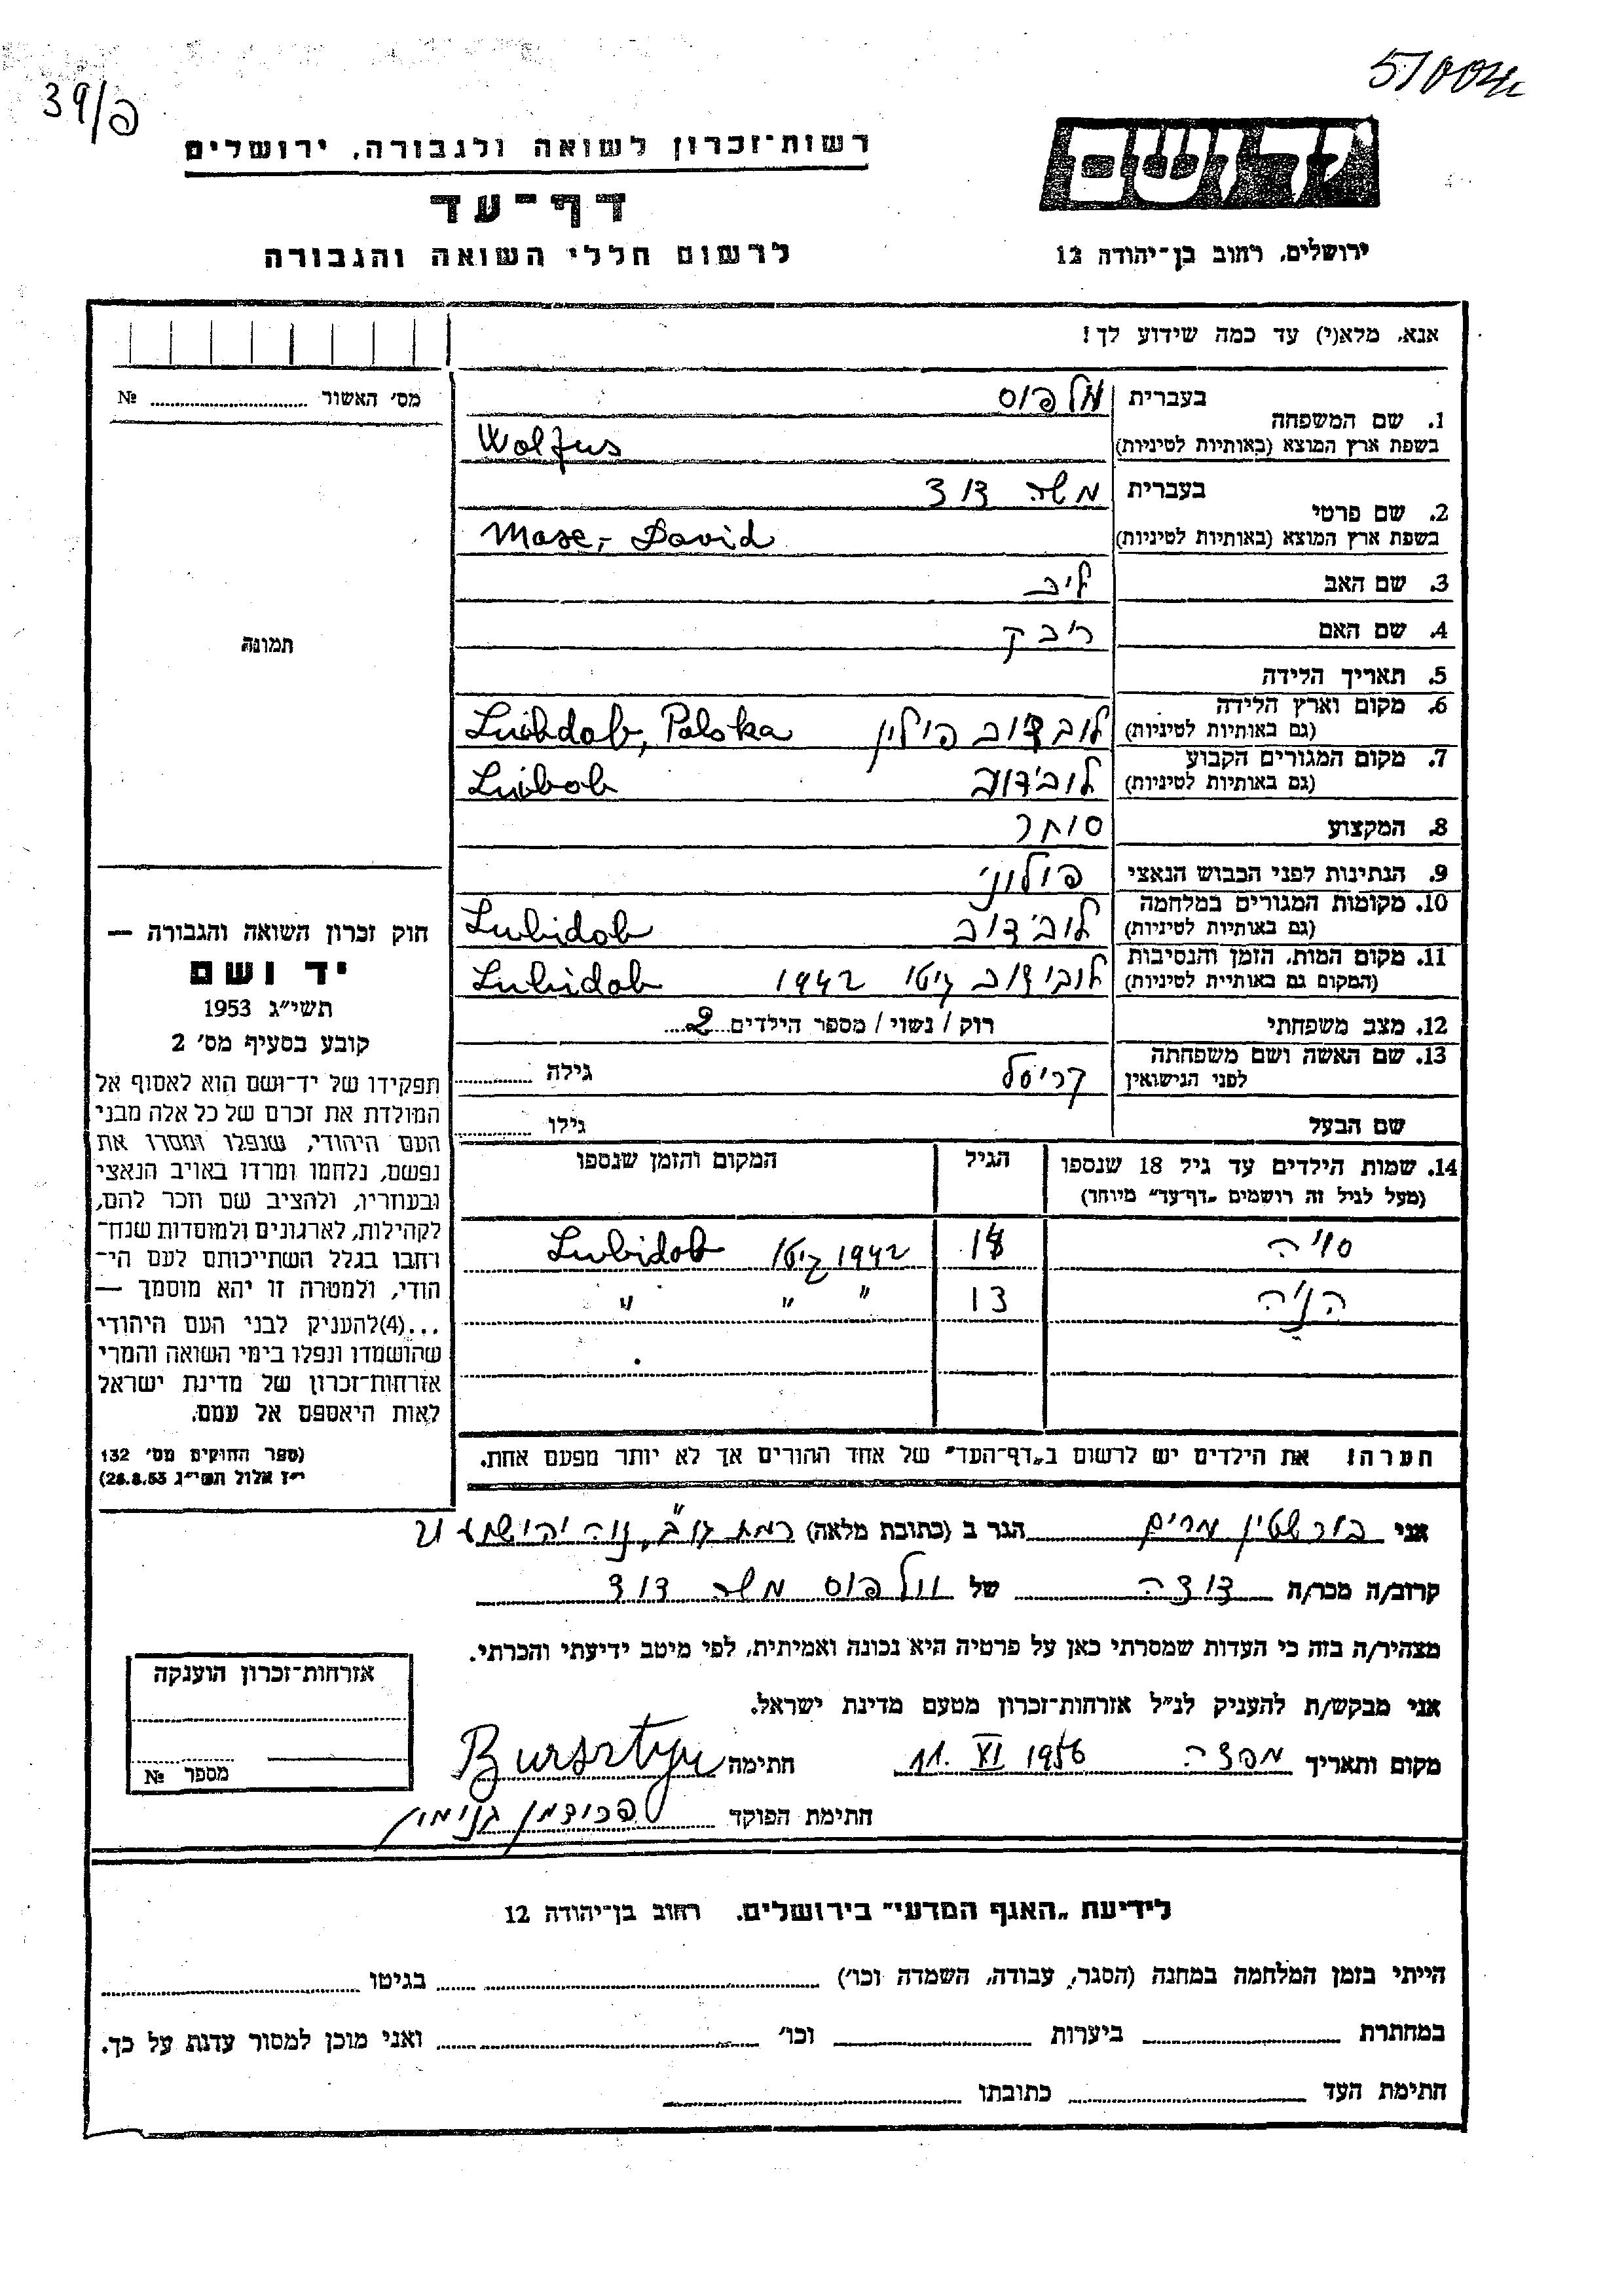 39/פ
רשות־זכרון לשואה ולגבורה, ירושלים
דף־עד
לרשום חללי השואה והגבורה
ידושם
ירושלים, רחוב בן־יהודה 12
אנא, מלא(י) עד כמה שידוע לך!
מס׳ האשור № 
1. שם המשפחה בעברית וולפוס
בשפת ארץ המוצא (באותיות לטיניות) Wolfus
2. שם פרטי בעברית משה דוד
בשפת ארץ המוצא (באותיות לטיניות) Mose, David
3. שם האב ליב
4. שם האם
5. תאריך הלידה
6. מקום וארץ הלידה (גם באותיות לטיניות) פולין Polska
7. מקום המגורים הקבוע (גם באותיות לטיניות) לובידוב
8. המקצוע סוחר
9. הנתינות לפני הכבוש הנאצי פולוני
10. מקומות המגורים במלחמה (גם באותיות לטיניות) לובידוב Lubidob
11. מקום המות, הזמן והנסיבות (המקום גם באותיות לטיניות) לובידוב גיטו 1942 Lubidob
12. מצב משפחתי רוק / נשוי / מספר הילדים 2
13. שם האשה ושם משפחתה לפני הנישואין גילה
שם הבעל גילו
14. שמות הילדים עד גיל 18 שנספו (מעל לגיל זה רושמים „דף־עד״ מיוחד) הגיל המקום והזמן שנספו
1942 גיטו Lubidob
הניה 13 ״ ״ ״
הערה! את הילדים יש לרשום ב„דף־העד״ של אחד ההורים אך לא יותר מפעם אחת.
תמונה
חוק זכרון השואה והגבורה —
יד ושם
תשי״ג 1953
קובע בסעיף מס׳ 2
תפקידו של יד־ושם הוא לאסוף אל
המולדת את זכרם של כל אלה מבני
העם היהודי, שנפלו ומסרו את
נפשם, נלחמו ומרדו באויב הנאצי
ובעוזריו, ולהציב שם וזכר להם,
לקהילות, לארגונים ולמוסדות שנח־
רבו בגלל השתייכותם לעם הי־
הודי, ולמטרה זו יהא מוסמך —
...(4) להעניק לבני העם היהודי
שהושמדו ונפלו בימי השואה והמרי
אזרחות־זכרון של מדינת ישראל
לאות היאספם אל עמם.
(ספר החוקים מס׳ 132
י״ז אלול תשי״ג 28.8.53)
אני בורשטין מרים הגר ב (כתובת מלאה) רמת גן, נוה יהושע
קרוב/ה מכר/ה דודה של וולפוס משה דוד
מצהיר/ה בזה כי העדות שמסרתי כאן על פרטיה היא נכונה ואמיתית, לפי מיטב ידיעתי והכרתי.
אני מבקש/ת להעניק לנ״ל אזרחות־זכרון מטעם מדינת ישראל.
מקום ותאריך 11. XI 1956 חתימה Bursztyn
חתימת הפוקד
אזרחות־זכרון הוענקה
מספר №
לידיעת „האגף המדעי״ בירושלים, רחוב בן־יהודה 12
הייתי בזמן המלחמה במחנה (הסגר, עבודה, השמדה וכו׳) בגיטו
במחתרת ביערות וכו׳ ואני מוכן למסור עדות על כך.
חתימת העד כתובתו